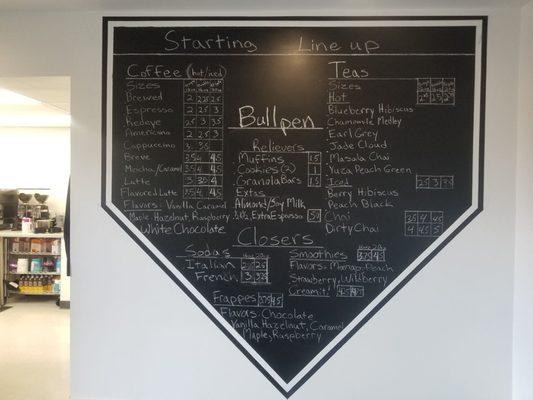 Starting Line up
Coffee (hot/iced)
Sizes
Brewed 2 2.25 2.5
Espresso 2 2.5 3
Redeye 2.5 3 3.5
Americano 2 2.5 3
Cappuccino 3 3.5
Breve 3.5 4 4.5
Mocha/Caramel 3.5 4 4.5
Latte 3 3.5 4
Flavored Latte 3.5 4 4.5
Flavors: Vanilla Caramel
Maple, Hazelnut, Raspberry
White Chocolate
Bullpen
Relievers
Muffins 1.5
Cookies (2) 1
Granola Bars 1.5
Extras
Almond/Soy Milk
Extra Espresso .50
Teas
Sizes
Hot 2 2.5
Blueberry Hibiscus
Chamomile Medley
Earl Grey
Jade Cloud
Masala Chai
Yuza Peach Green
Iced 2.5 3 3.5
Berry Hibiscus
Peach Black
Chai 3.5 4 4.5
Dirty Chai 4 4.5 5
Closers
Sodas
Italian 2 2.5
French 3 3.25
Frappes 3.75 4.5
Flavors: Chocolate
Vanilla, Hazelnut, Caramel
Maple, Raspberry
Smoothies 3.75 4.5
Flavors: Mango, Peach
Strawberry, Wildberry
Cream it!